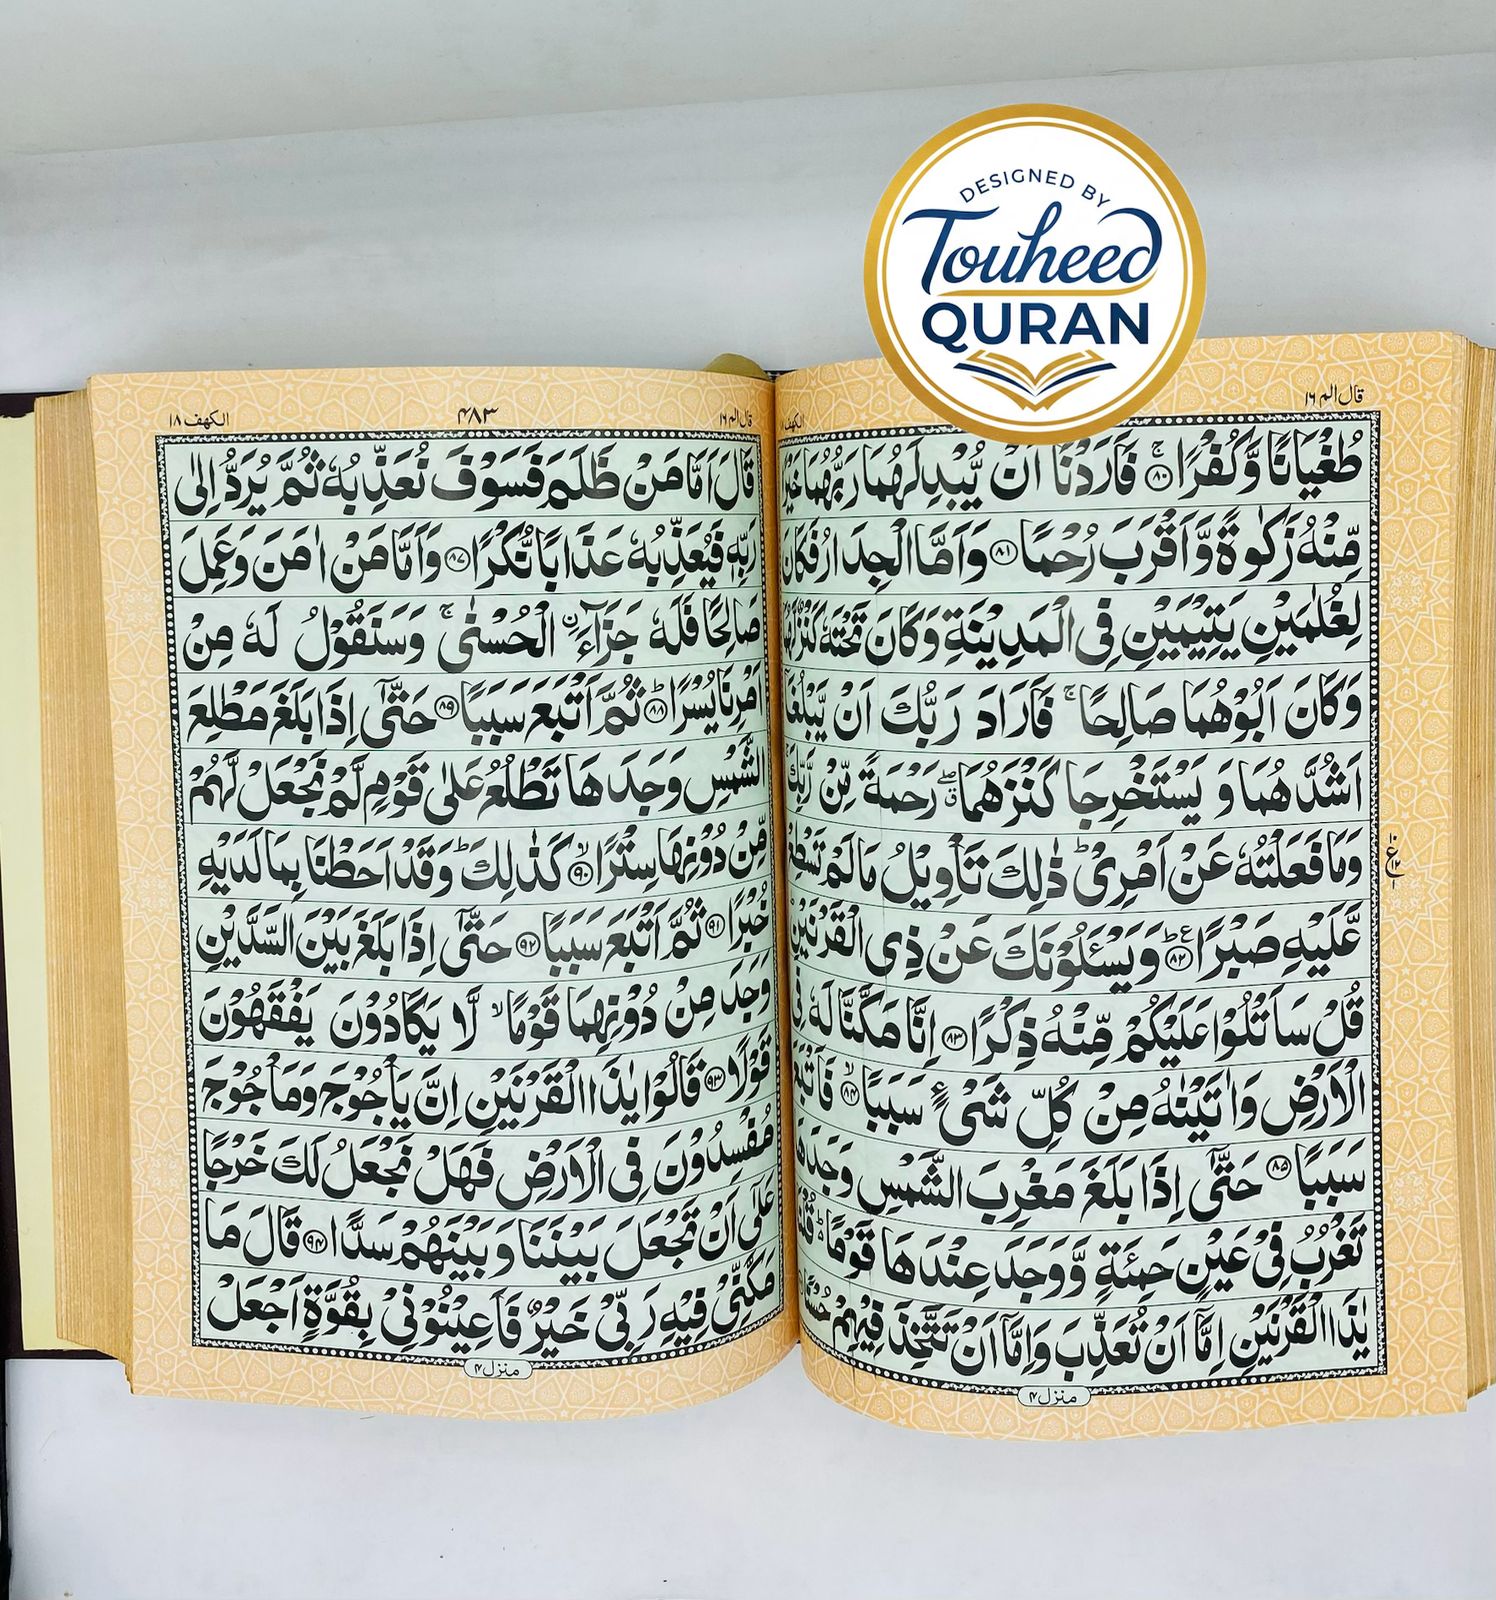 DESIGNED BY
Touheed
QURAN
قال الم ١٦
طُغْيَانًا وَّكُفْرًا ﴿٨٠﴾ۚ فَاَرَدْنَاۤ اَنْ يُّبْدِلَهُمَا رَبُّهُمَا خَيْرًا
مِّنْهُ زَكٰوةً وَّاَقْرَبَ رُحْمًا ﴿٨١﴾ وَاَمَّا الْجِدَارُ فَكَانَ
لِغُلٰمَيْنِ يَتِيْمَيْنِ فِى الْمَدِيْنَةِ وَكَانَ تَحْتَهٗ كَنْزٌ لَّهُمَا
وَكَانَ اَبُوْهُمَا صَالِحًا ۚ فَاَرَادَ رَبُّكَ اَنْ يَّبْلُغَاۤ
اَشُدَّهُمَا وَ يَسْتَخْرِجَا كَنْزَهُمَا ۖ رَحْمَةً مِّنْ رَّبِّكَ ۚ
وَمَا فَعَلْتُهٗ عَنْ اَمْرِىْ ؕ ذٰلِكَ تَاْوِيْلُ مَا لَمْ تَسْطِعْ
عَّلَيْهِ صَبْرًا ﴿٨٢﴾ؕ وَيَسْـَٔلُوْنَكَ عَنْ ذِى الْقَرْنَيْنِ ؕ
قُلْ سَاَتْلُوْا عَلَيْكُمْ مِّنْهُ ذِكْرًا ﴿٨٣﴾ اِنَّا مَكَّنَّا لَهٗ فِى
الْاَرْضِ وَاٰتَيْنٰهُ مِنْ كُلِّ شَىْءٍ سَبَبًا ﴿٨٤﴾ۙ فَاَتْبَعَ
سَبَبًا ﴿٨٥﴾ حَتّٰۤى اِذَا بَلَغَ مَغْرِبَ الشَّمْسِ وَجَدَهَا
تَغْرُبُ فِىْ عَيْنٍ حَمِئَةٍ وَّوَجَدَ عِنْدَهَا قَوْمًا ؕ قُلْنَا
يٰذَا الْقَرْنَيْنِ اِمَّاۤ اَنْ تُعَذِّبَ وَاِمَّاۤ اَنْ تَتَّخِذَ فِيْهِمْ حُسْنًا
منزل ٤
الكهف ١٨
٤٨٣
قال الم ١٦
قَالَ اَمَّا مَنْ ظَلَمَ فَسَوْفَ نُعَذِّبُهٗ ثُمَّ يُرَدُّ اِلٰى
رَبِّهٖ فَيُعَذِّبُهٗ عَذَابًا نُّكْرًا ﴿٨٧﴾ وَاَمَّا مَنْ اٰمَنَ وَعَمِلَ
صَالِحًا فَلَهٗ جَزَآءَ ِۨ الْحُسْنٰى ۚ وَسَنَقُوْلُ لَهٗ مِنْ
اَمْرِنَا يُسْرًا ﴿٨٨﴾ؕ ثُمَّ اَتْبَعَ سَبَبًا ﴿٨٩﴾ حَتّٰۤى اِذَا بَلَغَ مَطْلِعَ
الشَّمْسِ وَجَدَهَا تَطْلُعُ عَلٰى قَوْمٍ لَّمْ نَجْعَلْ لَّهُمْ
مِّنْ دُوْنِهَا سِتْرًا ﴿٩٠﴾ۙ كَذٰلِكَ ؕ وَقَدْ اَحَطْنَا بِمَا لَدَيْهِ
خُبْرًا ﴿٩١﴾ ثُمَّ اَتْبَعَ سَبَبًا ﴿٩٢﴾ حَتّٰۤى اِذَا بَلَغَ بَيْنَ السَّدَّيْنِ
وَجَدَ مِنْ دُوْنِهِمَا قَوْمًا ۙ لَّا يَكَادُوْنَ يَفْقَهُوْنَ
قَوْلًا ﴿٩٣﴾ قَالُوْا يٰذَا الْقَرْنَيْنِ اِنَّ يَاْجُوْجَ وَمَاْجُوْجَ
مُفْسِدُوْنَ فِى الْاَرْضِ فَهَلْ نَجْعَلُ لَكَ خَرْجًا
عَلٰۤى اَنْ تَجْعَلَ بَيْنَنَا وَبَيْنَهُمْ سَدًّا ﴿٩٤﴾ قَالَ مَا
مَكَّنِّىْ فِيْهِ رَبِّىْ خَيْرٌ فَاَعِيْنُوْنِىْ بِقُوَّةٍ اَجْعَلْ
منزل ٤